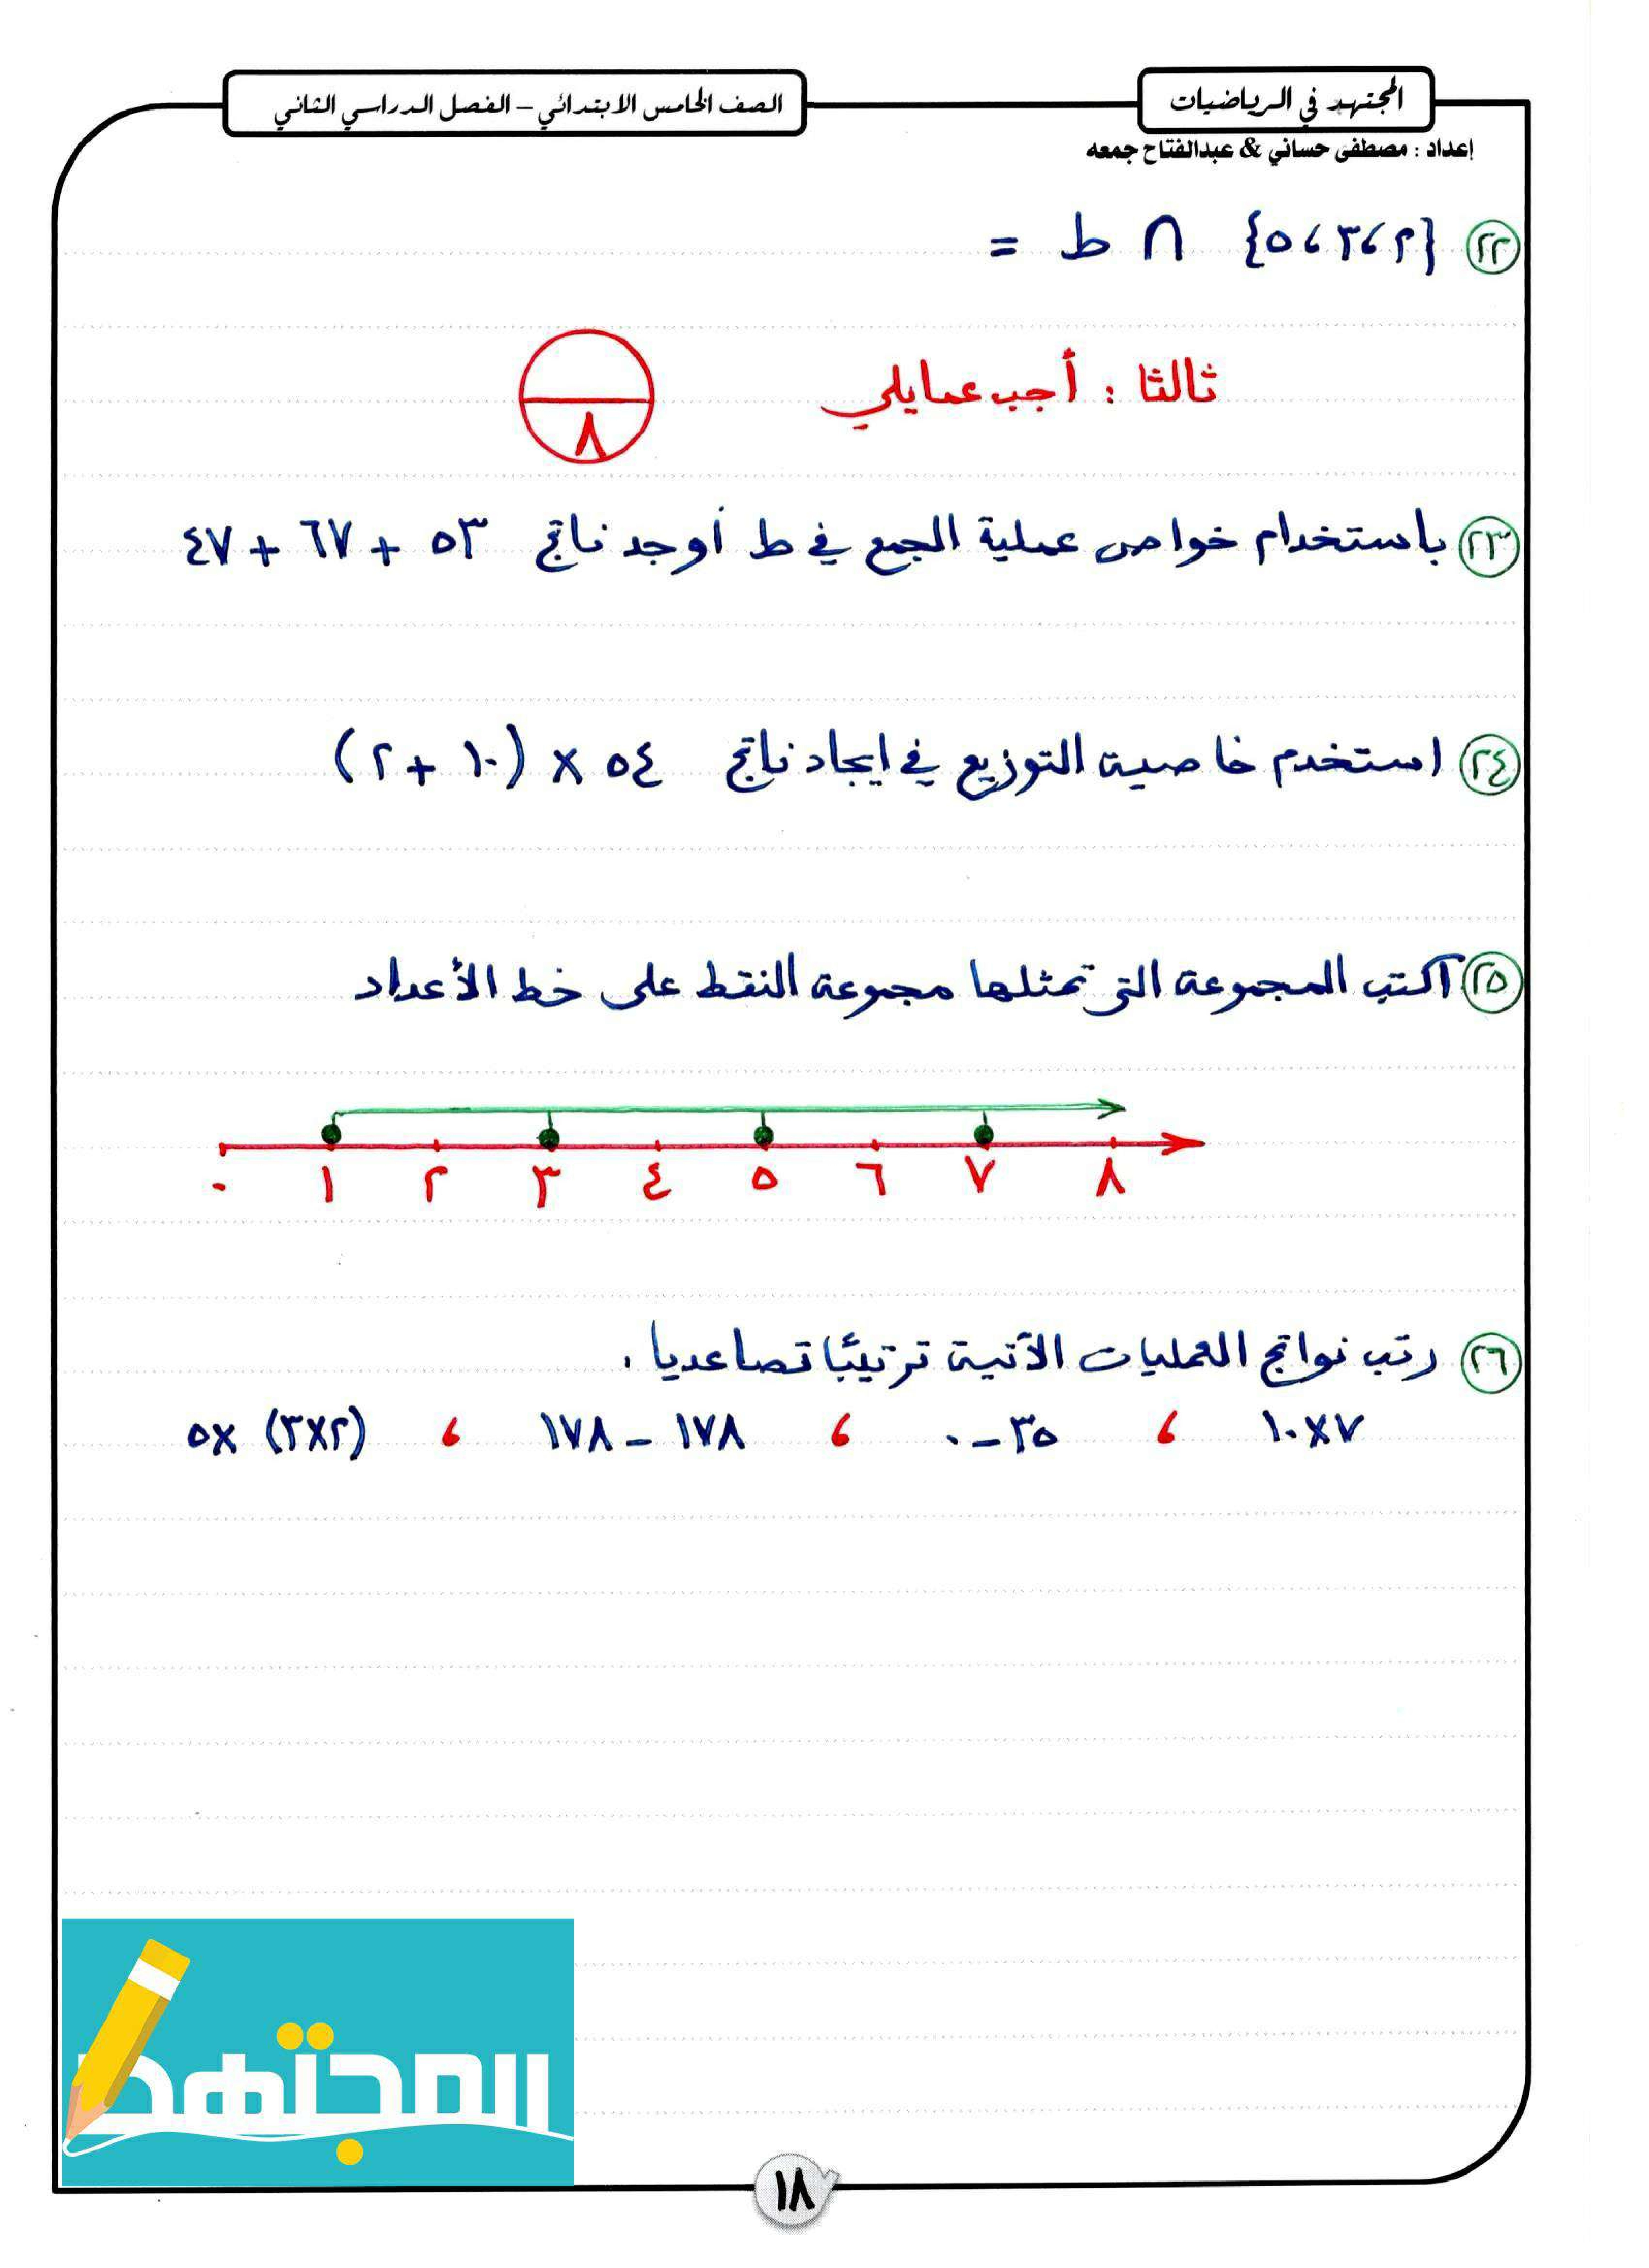 المجتهد في الرياضيات
الصف الخامس الابتدائي – الفصل الدراسي الثاني
إعداد : مصطفى حساني & عبدالفتاح جمعه
٢٢ {٢ ، ٣ ، ٥} ∩ ط =
ثالثا : أجب عما يلي
٨
٢٣ باستخدام خواص عملية الجمع في ط أوجد ناتج ٥٣ + ٦٧ + ٤٧
٢٤ استخدم خاصية التوزيع في ايجاد ناتج ٥٤ × (١٠ + ٢)
٢٥ اكتب المجموعة التي تمثلها مجموعة النقط على خط الأعداد
٠ ١ ٢ ٣ ٤ ٥ ٦ ٧ ٨
٢٦ رتب نواتج العمليات الآتية ترتيبًا تصاعديا .
٧×١٠ ، ٣٥ – ٠ ، ١٧٨ – ١٧٨ ، (٢×٣) ×٥
المجتهد
١٨